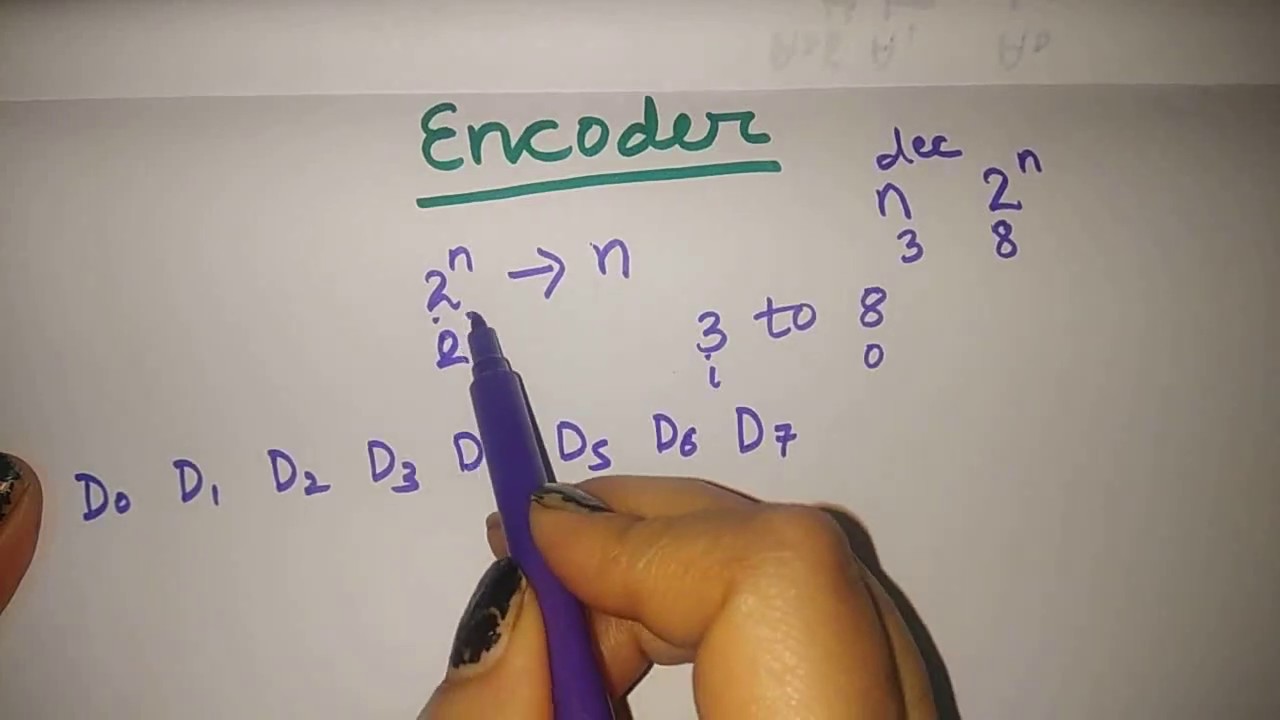 Encoder
dec
n 2ⁿ
3 8
2ⁿ → n
3 to 8
i 0
D0 D1 D2 D3 D D5 D6 D7